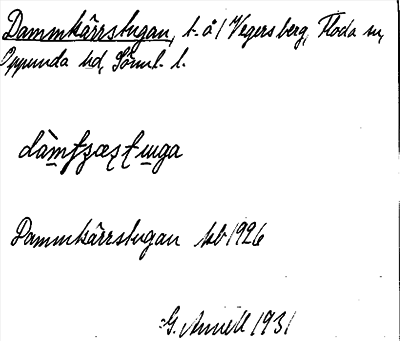 Dammkärrstugan, t. å / Vegersberg, Floda sn,
Oppunda hd, Södml. l.
Dammkärrstugan kb 1926
G. Annell 1931